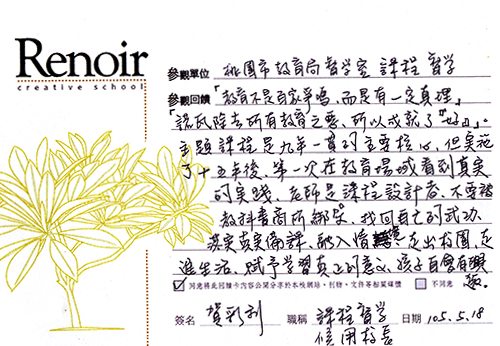 Renoir
creative school
參觀單位 桃園市教育局督學室 課程督學
參觀回饋 「教育不是百家爭鳴,而是有一定真理」
「諾瓦除去所有教育之惡,所以成就了
主題課程是九年一貫的主要核心,但實施
了十五年後,第一次在教育場域看到真實
的實踐。老師是課程設計者,不要被
教科書商所綁架。找回自己的武功,
落實真實備課,融入情意,走出校園,走
進生活,賦予學習真正的意義,孩子自會有觀
☑ 同意將此回饋卡內容公開分享於本校網站、刊物、文件等相關媒體 ☐ 不同意
簽名 賀彩利 職稱 課程督學 日期 105.5.18
借用校長